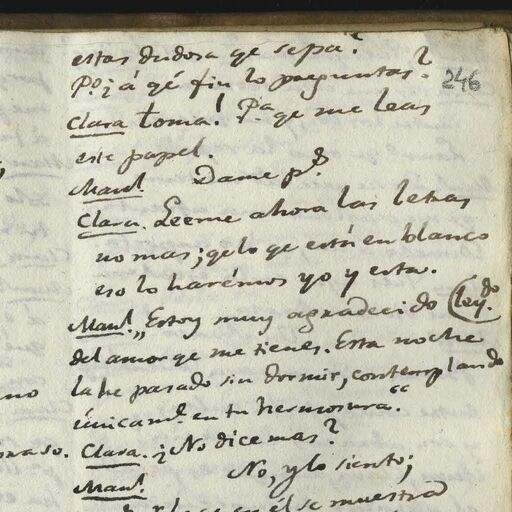 estas dudosa qe sepa?
Po ¿á qé fin lo preguntas?
246
Clara toma! Pa qe me leas
este papel.
Manl Dame ps.
Clara. Leeme ahora las letras
no mas; qe lo qe está en blanco
eso lo harémos yo y esta.
Manl. „Estoy muy agradecido (leydo.
del amor qe me tienes. Esta noche
la he pasado sin dormir, contemplando
no
únicamte en tu hermosura."
Clara. ¿No dice mas?
Manl. No, y lo siento;
en él se muestra